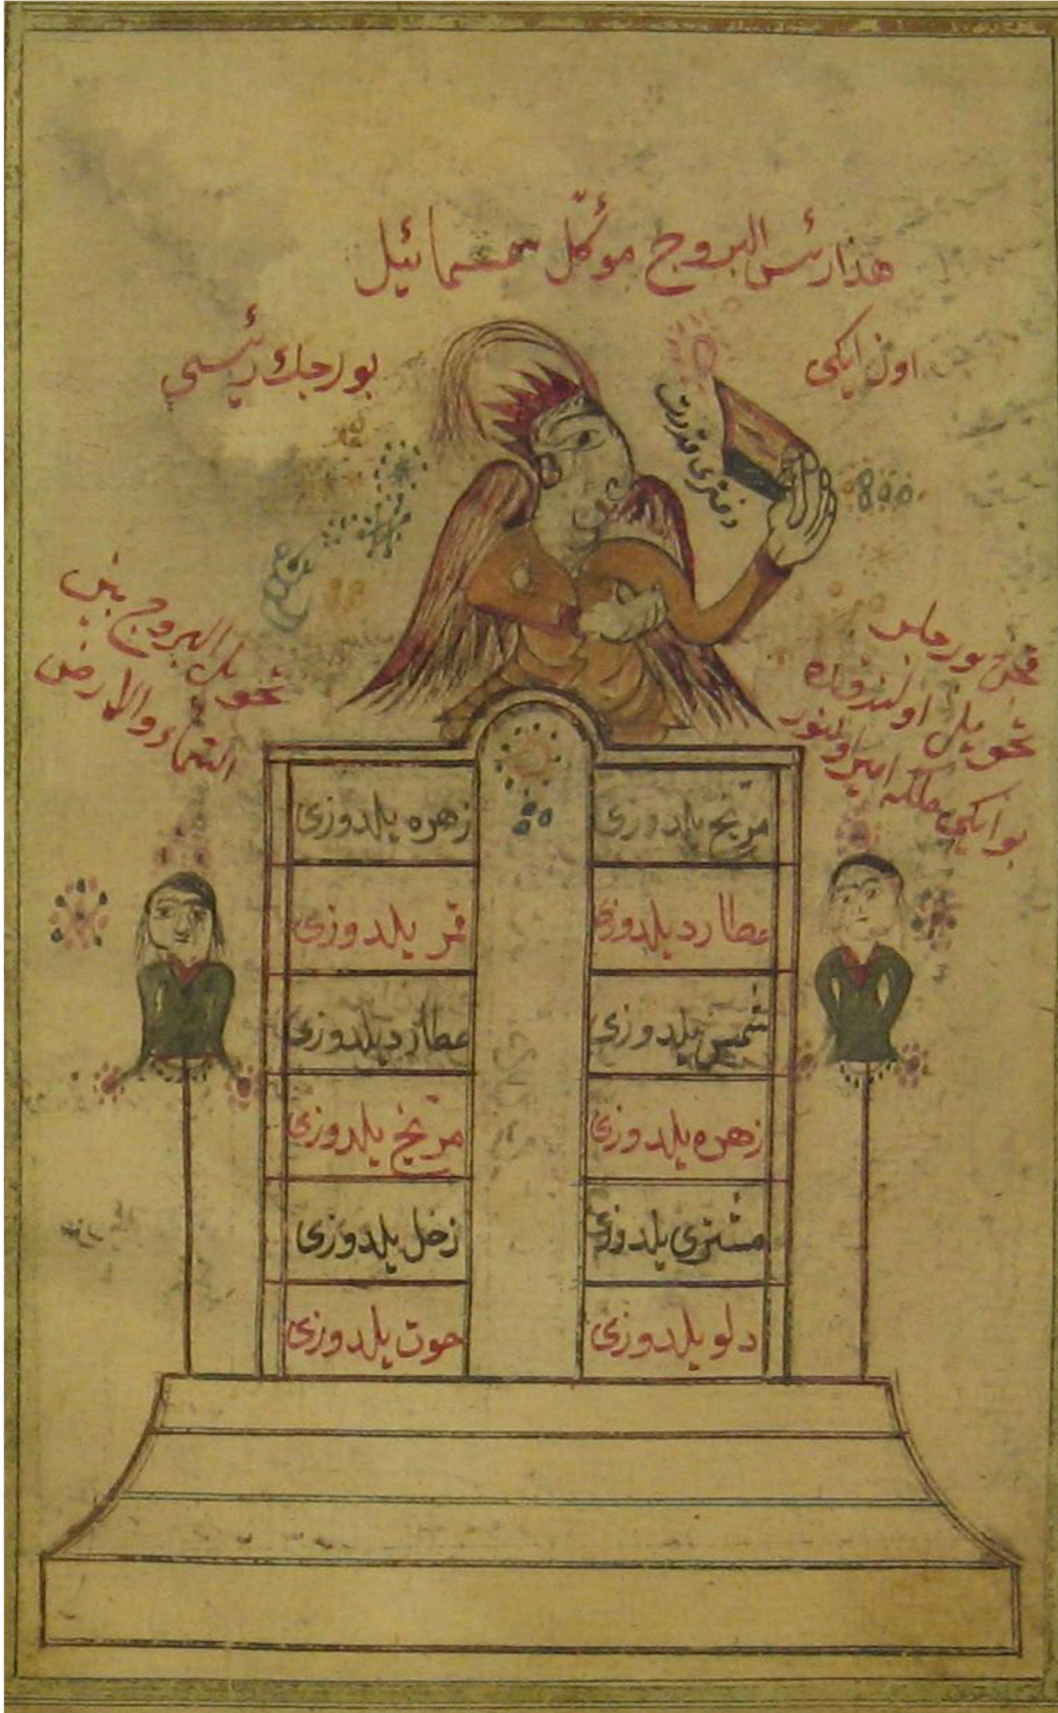 هذا رئيس البروج موكّل سمسمائيل
اون ایکی
بورجك رئیسی
دفتری قدرت
تحویل البروج بین
السماء والارض
قچن بورجلر
تحویل اولندوقده
بو ایکی ملکه امر اولنور
مرّیخ یلدوزی
زهره یلدوزی
عطارد یلدوزی
قمر یلدوزی
شمس یلدوزی
عطارد یلدوزی
زهره یلدوزی
مرّیخ یلدوزی
مشتری یلدوزی
زحل یلدوزی
دلو یلدوزی
حوت یلدوزی